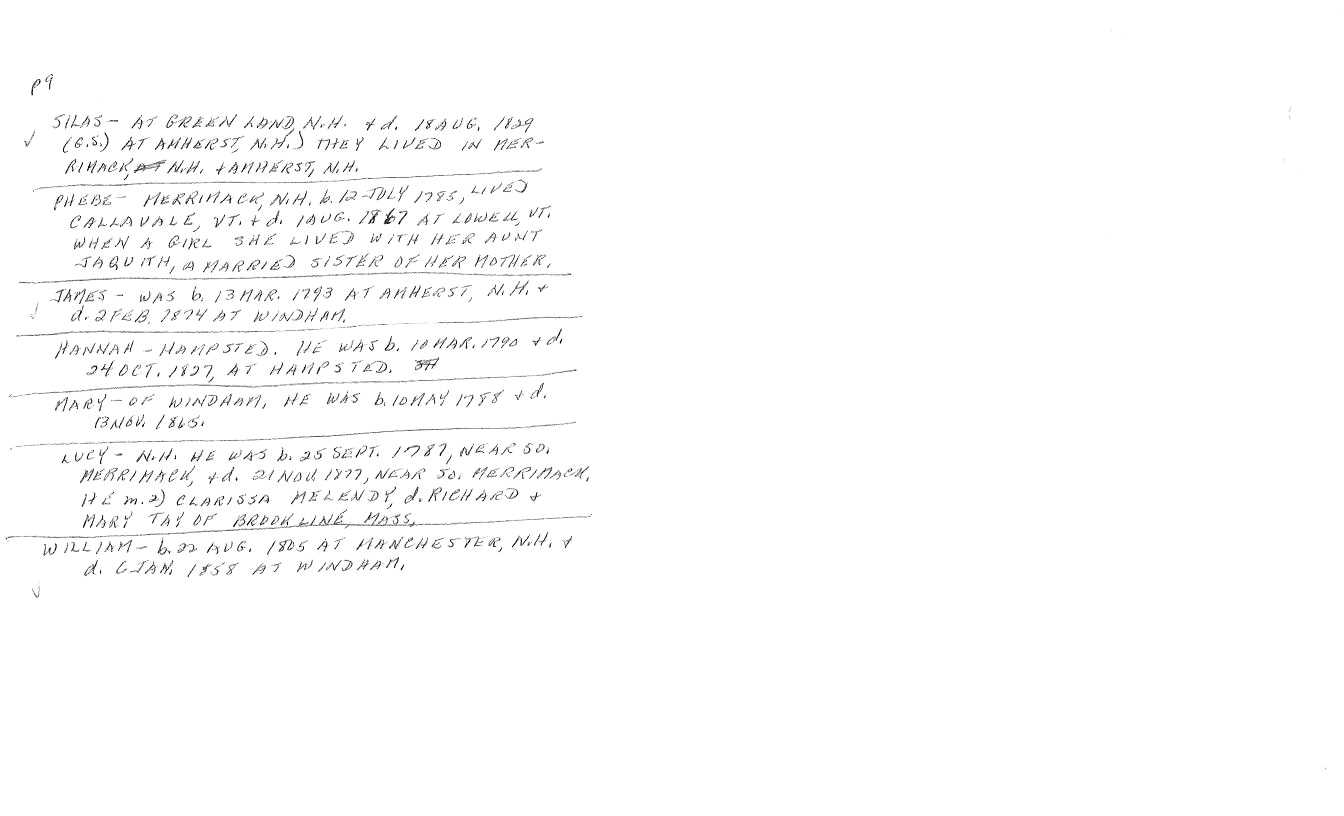 p9
SILAS - AT GREEN LAND, N.H. + d. 18 AUG. 1829
(G.S.) AT AMHERST, N.H.) THEY LIVED IN MER-
RIMACK, N.H. + AMHERST, N.H.
PHEBE - MERRIMACK, N.H. b. 12 JULY 1785, LIVED
CALLAVALE, VT. + d. 1 AUG. 1867 AT LOWELL, VT.
WHEN A GIRL SHE LIVED WITH HER AUNT
JAQUITH, A MARRIED SISTER OF HER MOTHER.
JAMES - WAS b. 13 MAR. 1793 AT AMHERST, N.H. +
d. 2 FEB. 1874 AT WINDHAM.
HANNAH - HAMPSTED. HE WAS b. 10 MAR. 1790 + d.
24 OCT. 1827, AT HAMPSTED.
MARY - OF WINDHAM, HE WAS b. 10 MAY 1788 + d.
13 NOV. 1865.
LUCY - N.H. HE WAS b. 25 SEPT. 1787, NEAR SO.
MERRIMACK, + d. 21 NOV. 1877, NEAR SO. MERRIMACK.
HE m. 2) CLARISSA MELENDY, d. RICHARD +
MARY TAY OF BROOKLINE, MASS.
WILLIAM - b. 22 AUG. 1805 AT MANCHESTER, N.H. +
d. 6 JAN. 1858 AT WINDHAM.